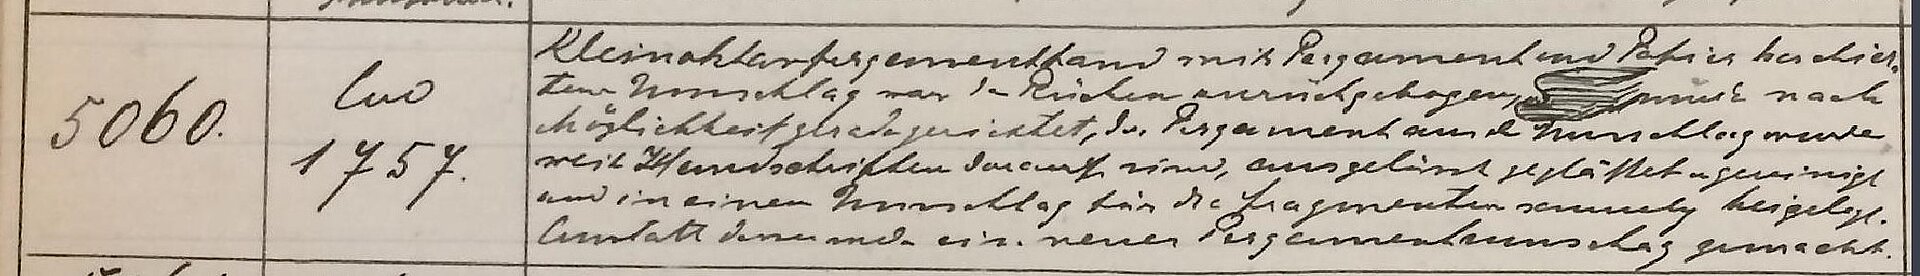 5060.
Cvo
1757.
Kleinoktavpergamentband mit Pergament und Papier kaschier-
tem Umschlag war der Rücken zurückgebogen, wurde nach
Möglichkeit geradegerichtet, das Pergament am Umschlag wurde
weil Handschriften darauf sind, ausgelöst geglättet u gereinigt
und in einen Umschlag für die Fragmenten beigelegt.
Anstatt dessen wurde ein neuer Pergamentumschlag gemacht.